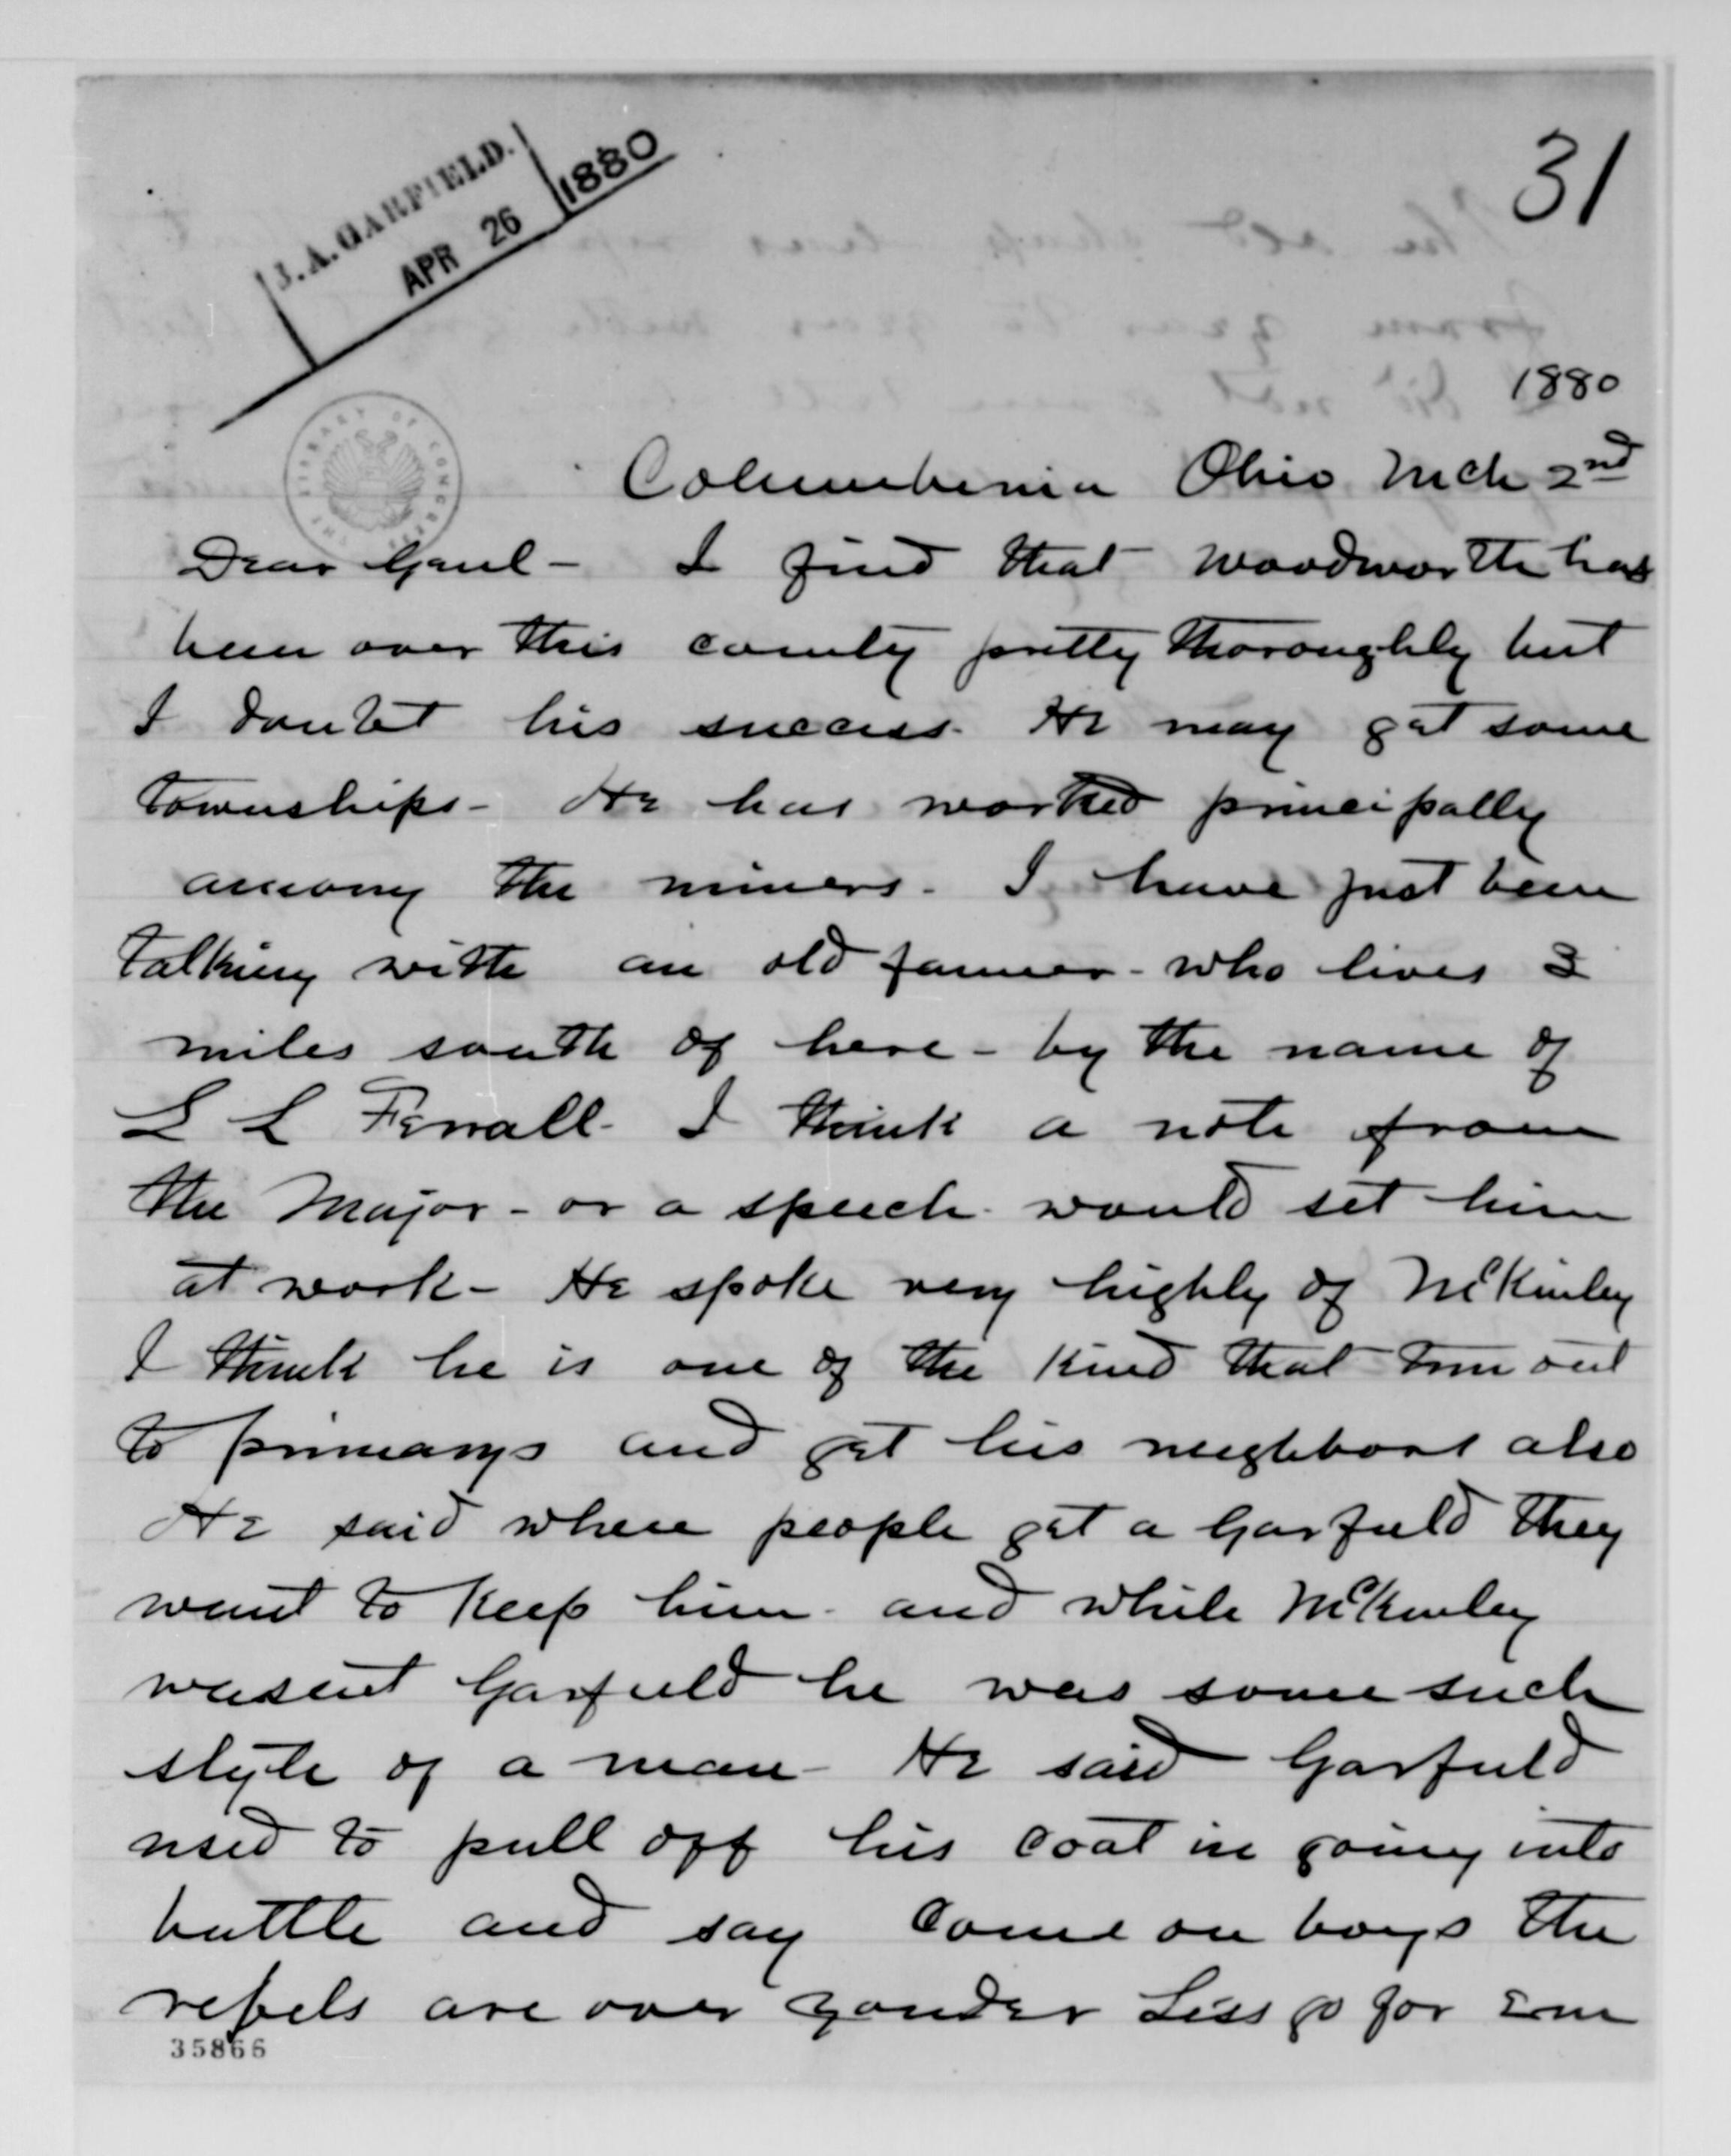 J. A. GARFIELD.
APR 26 1880
31
1880
THE LIBRARY OF CONGRESS
Columbiana Ohio Mch 2nd
Dear Genl - I find that Woodworth has
been over this county pretty thoroughly but
I doubt his success. He may get some
townships - He has worked principally
among the miners. I have just been
talking with an old farmer - who lives 3
miles south of here - by the name of
L L Ferrall. I think a note from
the Major - or a speech would set him
at work - He spoke very highly of McKinley
I think he is one of the kind that turn out
to primarys and get his neighbors also
He said when people get a Garfield they
want to keep him. and while McKinley
wasent Garfield he was some such
style of a man - He said Garfield
used to pull off his coat in going into
battle and say come on boys the
rebels are over yonder Less go for em
35866